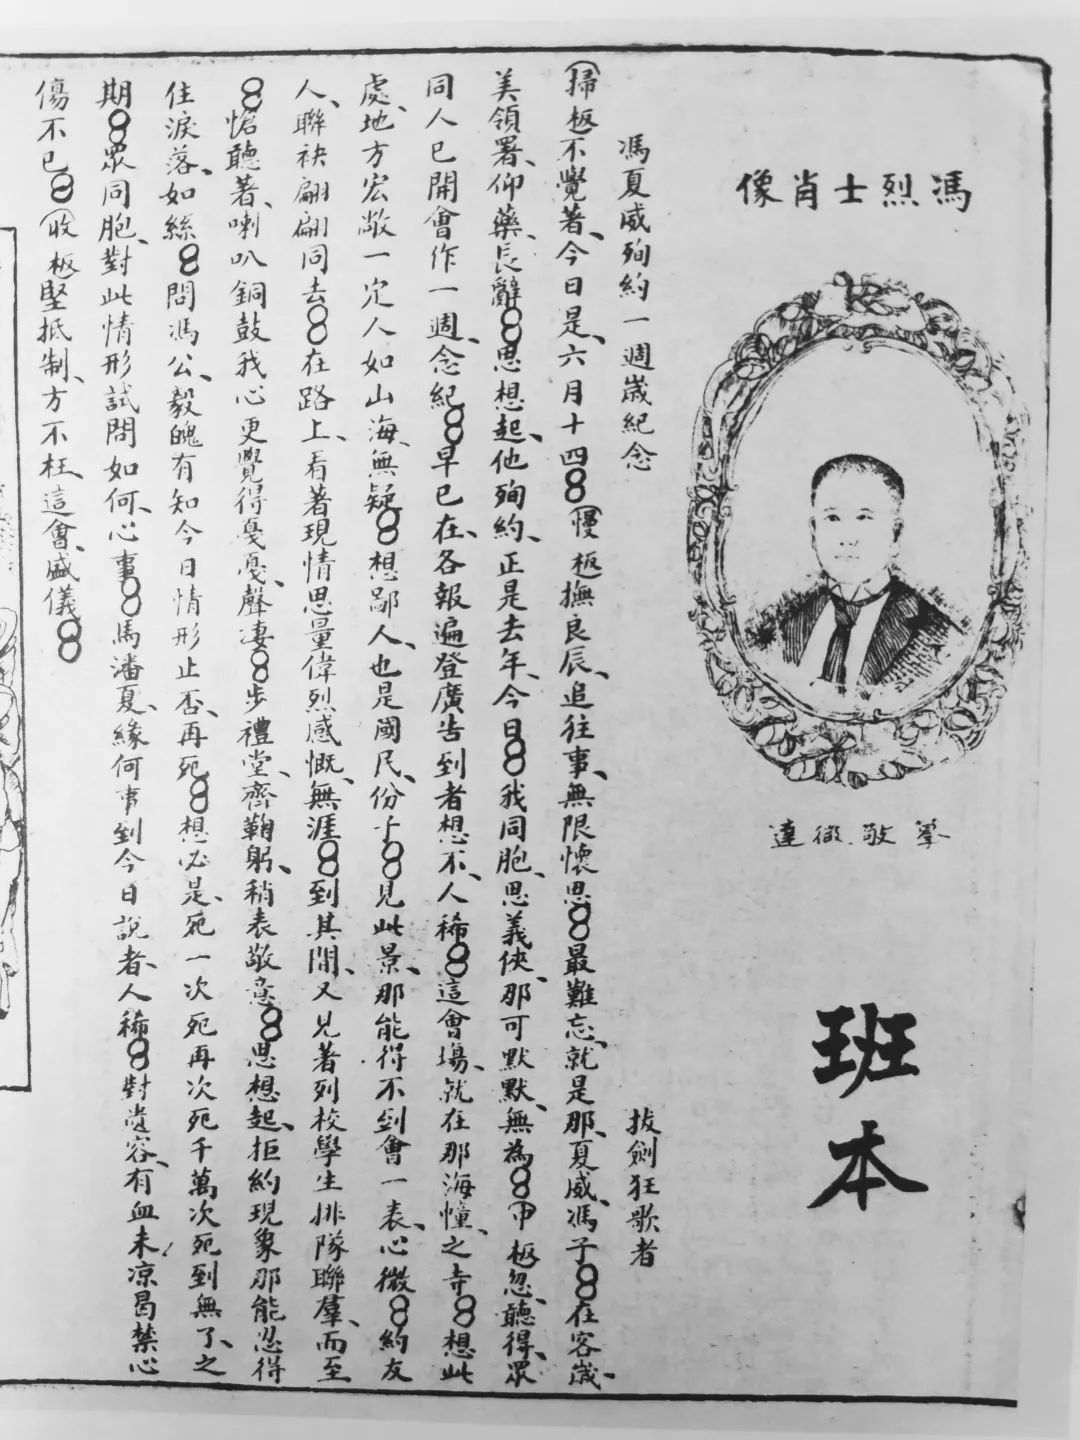 馮烈士肖像
達微敬摹
班本
馮夏威殉約一週歲紀念
拔劍狂歌者
(掃板)不覺著、今日是、六月十四8(慢板)撫良辰、追往事、無限懷思8最難忘、就是那、夏威、馮子8在客歲、
美領署、仰藥、長辭8思想起、他殉約、正是去年、今日8我同胞、思義俠、那可默默、無為8(中板)忽、聽得、眾
同人已開會作一週、念紀8早已在、各報遍登廣告到者想不、人稀8這會塲、就在那海幢、之寺8想此
處、地方宏敞一定人如山海、無疑8想鄙人、也是國民、份子8見此景、那能得不到會一表、心微8約友
人、聯袂翩翩同去8在路上、看著現情思量偉烈感慨、無涯8到其間、又見著列校學生排隊聯羣、而至
8恰聽著、喇叭銅鼓我心更覺得憂憂、聲凄8步禮堂、齊鞠躬、稍表敬意8思想起、拒約現象那能忍得
住淚落、如絲8問馮公、毅魄有知今日情形止否、再死8想必是、死一次死再次死千萬次死到無了、之
期8眾同胞、對此情形試問如何、心事8馬潘夏、緣何事到今日說者、人稀8對遺容、有血未凉曷禁心
傷不已8(收板)堅抵制、方不枉、這會、盛儀8